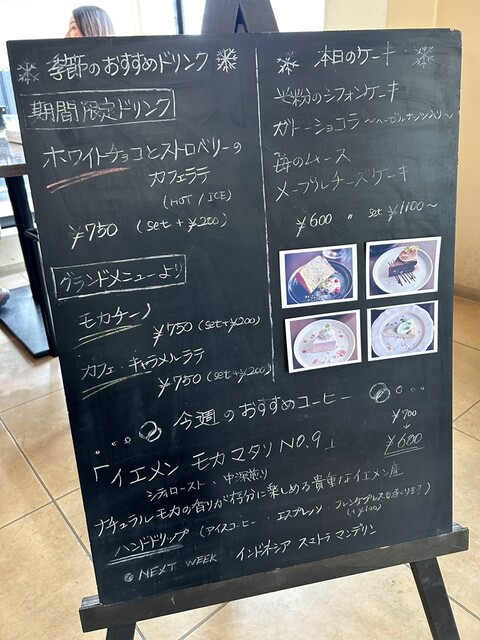 季節のおすすめドリンク
期間限定ドリンク
ホワイトチョコとストロベリーの
カフェラテ
(HOT / ICE)
¥750 (set+¥200)
グランドメニューより
モカチーノ
¥750 (set+¥200)
カフェ・キャラメルラテ
¥750 (set+¥200)
本日のケーキ
米粉のシフォンケーキ
ガトーショコラ 〜ヘーゼルナッツ入り〜
苺のムース
メープルチーズケーキ
¥600 〃 set ¥1100〜
今週のおすすめコーヒー
¥700
↓
¥600
「イエメン モカマタリ NO.9」
シティロースト、中深煎り
ナチュラルモカの香りが存分に楽しめる貴重なイエメン産
ハンドドリップ (アイスコーヒー・エスプレッソ・フレンチプレスも承ります)
(+¥100)
NEXT WEEK インドネシア スマトラ マンデリン